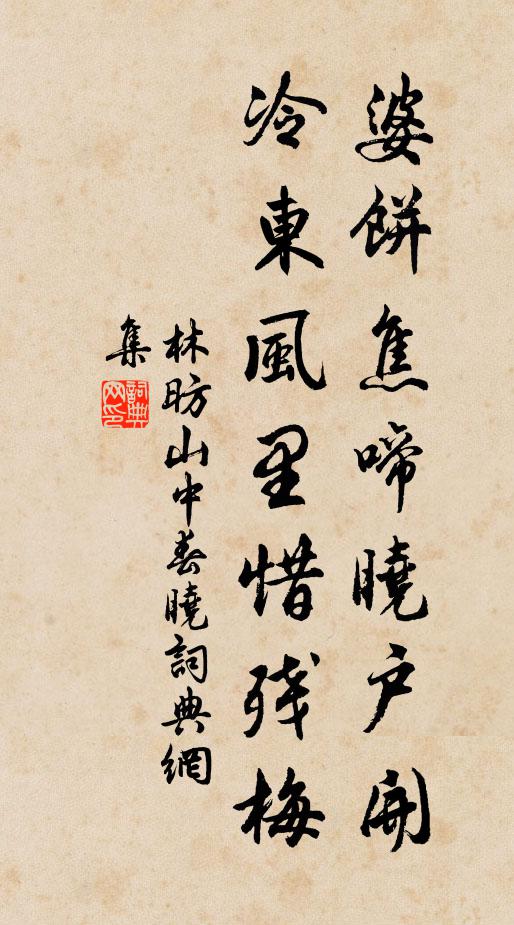 婆餅焦啼曉户開
冷東風里惜残梅
林昉山中春曉詞典網
集
詞典
网印